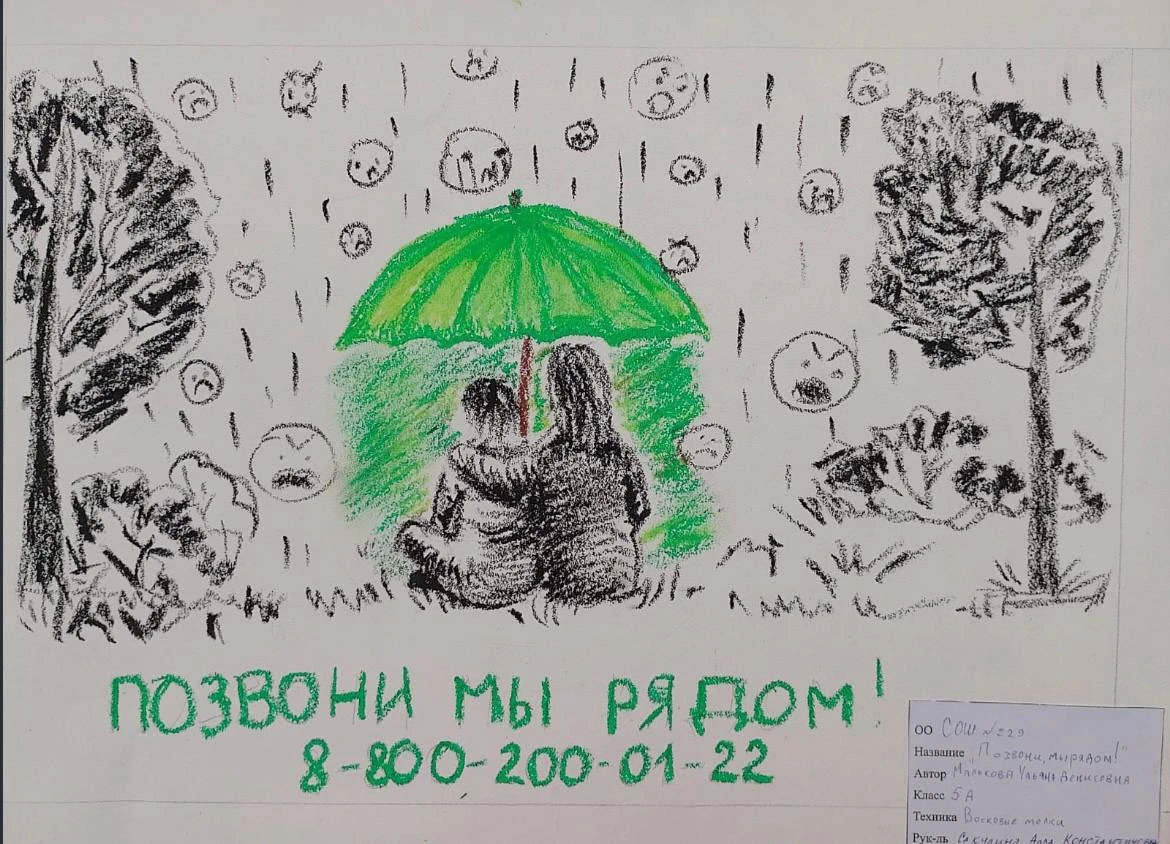 ПОЗВОНИ МЫ РЯДОМ!
8-800-200-01-22
ОО СОШ №229
Название "Позвони, мы рядом!"
Автор Малькова Ульяна Денисовна
Класс 5А
Техника Восковые мелки
Рук-ль Сакулина Алла Константиновна